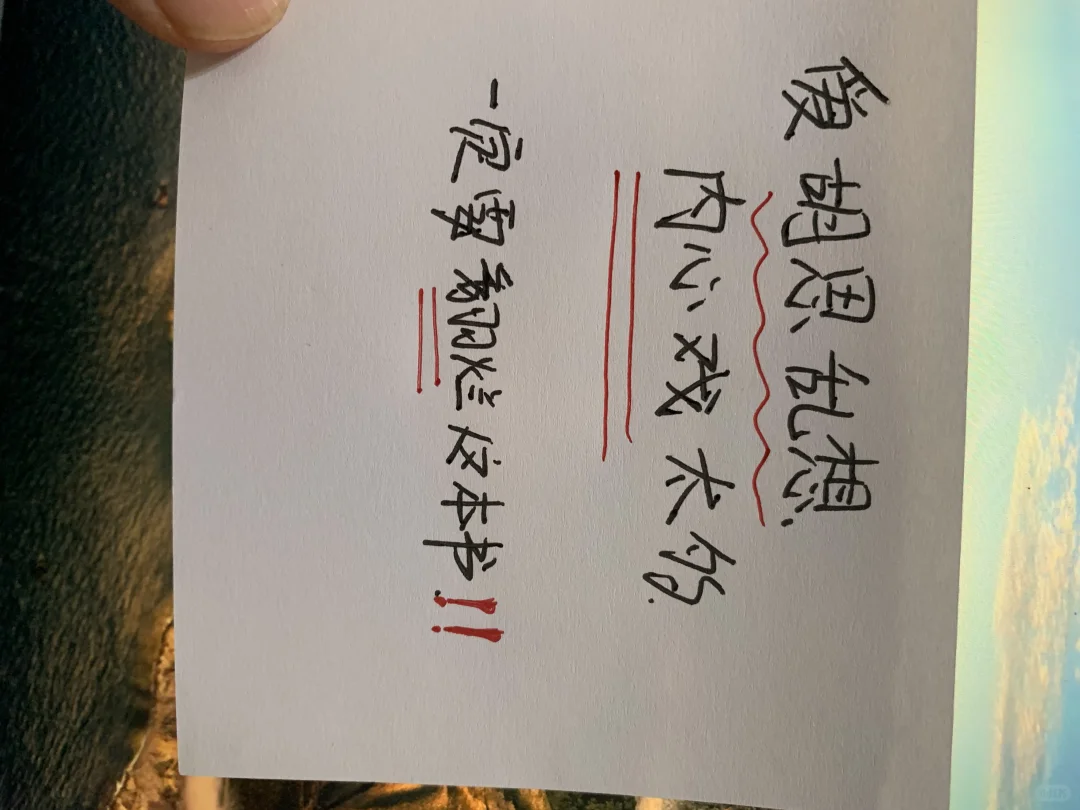 爱胡思乱想
内心戏太多
一定要翻烂这本书!!